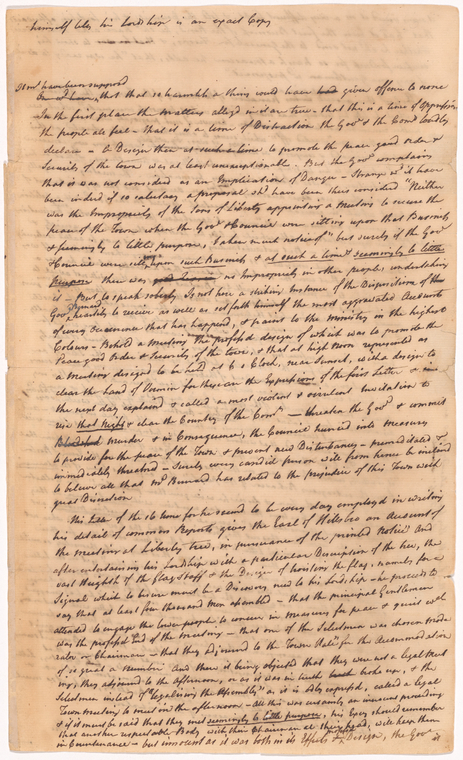 himself tells his Lordship is an exact Copy
It might have been supposd
that so harmless a thing would have given offence to none
In the first place the matters alledgd in it are true - that this is a time of oppression
the people all feel - that it is a time of Distraction the Govr & the Comrs loudly
declare - A Design then at such a time to promote the peace good order &
Security of the town was at least unexceptionable - But the Govr complains
that it was not considerd as an Implication of Danger - Strange wd it have
been indeed if so salutary a proposal shd have been thus considerd Neither
was the Impropriety of the Sons of Liberty appointing a Meeting to secure the
peace of the Town when the Govr & Council were sitting upon that Business
& seemingly to little purpose, "taken much notice of" but surely if the Govr
& Council were sitting upon such Business & at such a time seemingly to little
purpose there was no Impropriety in other peoples undertaking
it - But to speak soberly Is not here a striking Instance of the Disposition of
Govr Bernard heartily to receive as well as set forth himself the most aggravated Accounts
of every Occurrence that has happend, & paint to the Ministry in the highest
Colours - Behold a Meeting the professd design of which was to promote the
Peace good Order & Security of the town, & that at high Noon represented as
a Meeting designd to be held at 6 o Clock, near Sunset, with a design to
clear the Land of Vermin for these are the expressions of the first Letter & in
the next day explaind & called a most violent & virulent Invitation to
rise that Night & clear the Country of the Comrs - threaten the Govr & commit
murder & in Consequence, the Council hurried into measures
to provide for the peace of the Town & prevent new Disturbances - premeditated &
immediately threatned - Surely every candid person will from hence be inclind
to believe all that Mr Bernard has related to the prejudice of this Town with
great Discretion
This Letter of the 16 June for he seemd to be every day employd in writing
his detail of common Reports gives the Earl of Hillsbro an Account of
the meeting at Liberty tree, in pursuance of the printed Notice And
after entertaining his Lordship with a particular Description of the tree, the
vast Heighth of the Flag Staff & the Design of hoisting the flag, namely for a
Signal which to be sure must be a Discovery new to his Lordship - he proceeds to
say that at least four thousand men assembled - that the principal Gentlemen
attended to engage the lower people to concur in measures for peace & quiet wch
was the professd End of the meeting - that one of the Selectmen was chosen mode
rator or Chairman - that they adjournd to the Town Hall for the Accommodation
of so great a Number And there it being objected that they were not a legal meet
ing, they adjournd to the afternoon, or as it was in truth broke up, & the
Selectmen instead of "legalizing the Assembly" as it is odly expressd, called a legal
Town meeting to meet in the afternoon - All this was certainly an innocent proceeding
& if it must be said that they met seemingly to little purpose, his Excy should remember
that another respectable Body with their Chairman at their head, will keep them
in Countenance - but innocent as it was both in its Effects & Design, the Govr